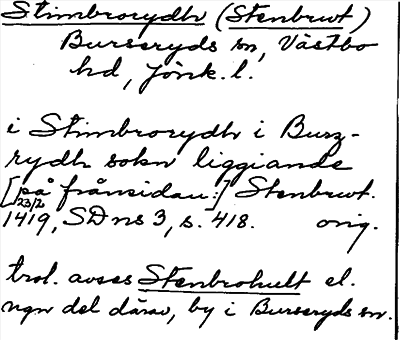 Stimbrorydh (Stenbrwt)
Burseryds sn, Västbo
hd, Jönk. l.
i Stimbrorydh i Burz-
rydh sokn liggiande
[på frånsidan:] Stenbrwt.
23/2
1419, SD ns 3, s. 418. orig.
trol. avses Stenbrohult el.
ngn del därav, by i Burseryds sn.